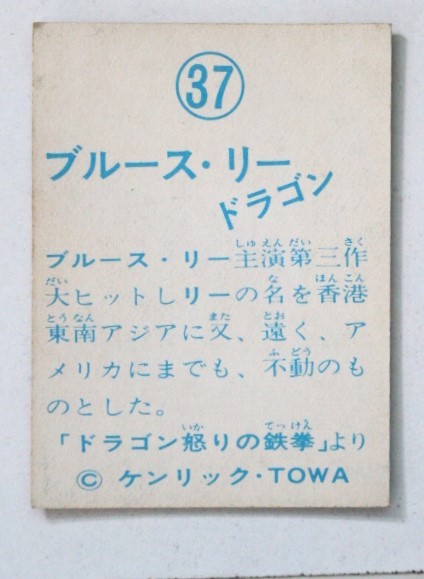 37
ブルース・リー
ドラゴン
ブルース・リー主演第三作
大ヒットしリーの名を香港
東南アジアに又、遠く、ア
メリカにまでも、不動のも
のとした。
「ドラゴン怒りの鉄拳」より
© ケンリック・TOWA